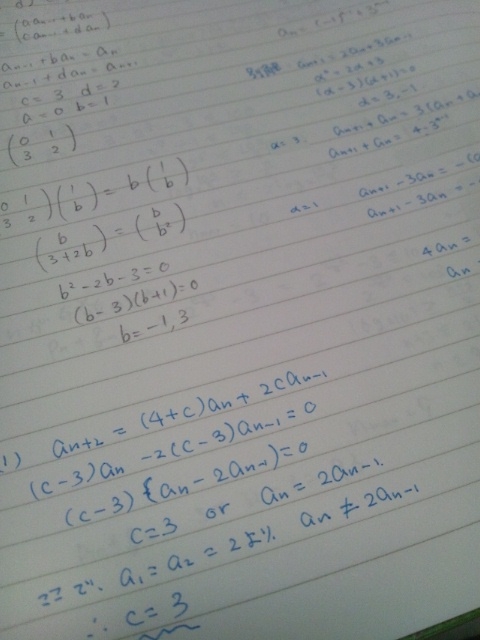 (aan-1+ban
can-1+dan)
an-1+ban=an
an-1+dan=an+1
c=3 d=2
a=0 b=1
(0 1
3 2)
(0 1
3 2)(1
b)=b(1
b)
(b
3+2b)=(b
b²)
b²-2b-3=0
(b-3)(b+1)=0
b=-1,3
別解 an+2=2an+3an-1
α²=2α+3
(α-3)(α+1)=0
α=3,-1
α=3
an+1+an=3(an+a
an+1+an=4・3
α=1
an+1-3an=-(a
an+1-3an=-
4an=
an=
1) an+2=(4+c)an+2can-1
(c-3)an-2(c-3)an-1=0
(c-3){an-2an-1)=0
c=3 or an=2an-1.
ここで、a1=a2=2より、an≠2an-1
∴c=3